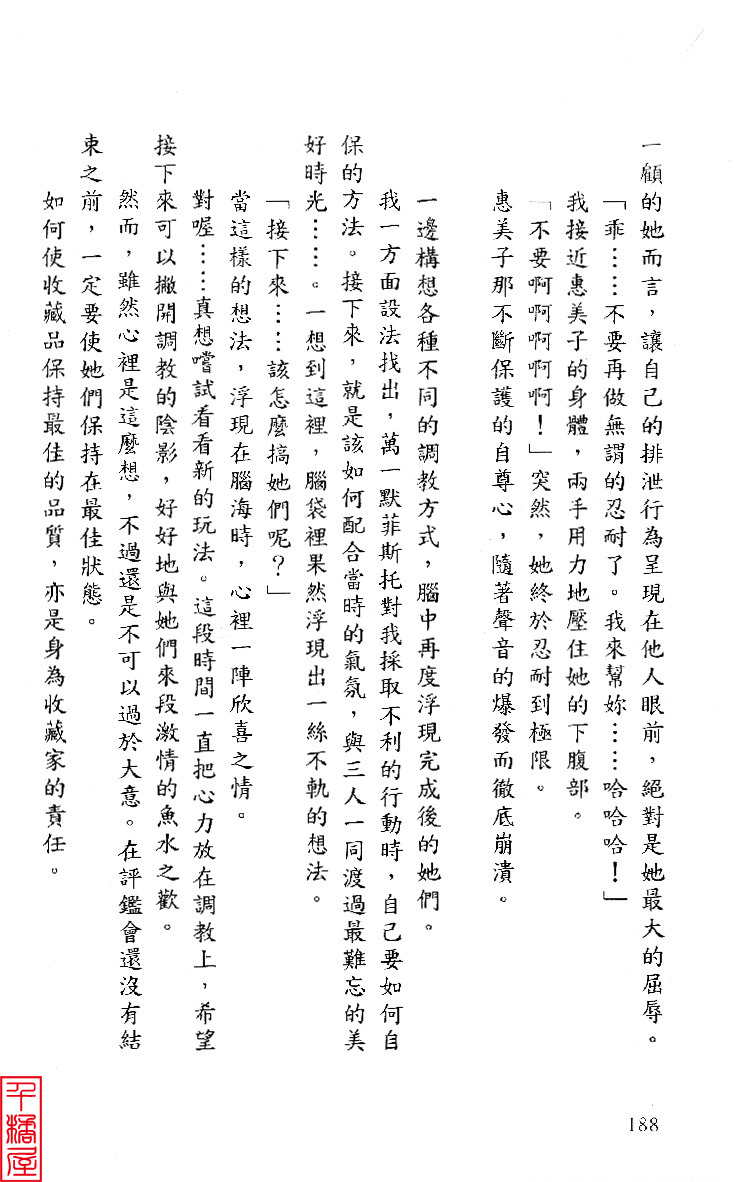 一顧的她而言，讓自己的排泄行為呈現在他人眼前，絕對是她最大的屈辱。
「乖……不要再做無謂的忍耐了。我來幫妳……哈哈哈！」
我接近惠美子的身體，兩手用力地壓住她的下腹部。
「不要啊啊啊啊啊！」突然，她終於忍耐到極限。
惠美子那不斷保護的自尊心，隨著聲音的爆發而徹底崩潰。
一邊構想各種不同的調教方式，腦中再度浮現完成後的她們。
我一方面設法找出，萬一默菲斯托對我採取不利的行動時，自己要如何自
保的方法。接下來，就是該如何配合當時的氣氛，與三人一同渡過最難忘的美
好時光……。一想到這裡，腦袋裡果然浮現出一絲不軌的想法。
「接下來……該怎麼搞她們呢？」
當這樣的想法，浮現在腦海時，心裡一陣欣喜之情。
對喔……真想嚐試看看新的玩法。這段時間一直把心力放在調教上，希望
接下來可以撇開調教的陰影，好好地與她們來段激情的魚水之歡。
然而，雖然心裡是這麼想，不過還是不可以過於大意。在評鑑會還沒有結
束之前，一定要使她們保持在最佳狀態。
如何使收藏品保持最佳的品質，亦是身為收藏家的責任。
188
千橘屋